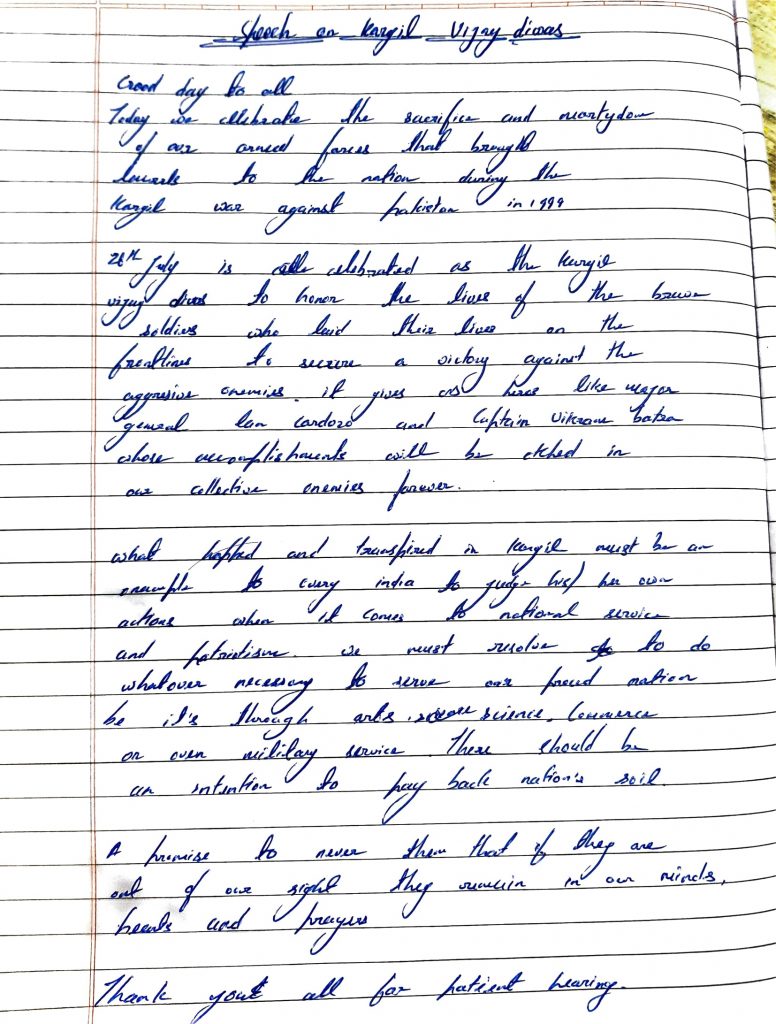 Speech on Kargil Vijay diwas
Good day to all
Today we celebrate the sacrifice and martydom
of our armed forces that brought
laurels to the nation during the
Kargil war against pakistan in 1999
26th July is celebrated as the Kargil
vijay diwas to honor the lives of the brave
soldiers who laid their lives on the
frontlines to secure a victory against the
aggresive enemies. it gives us heros like major
general Ian cardozo and Captain vikram batra
whose accomplishments will be etched in
our collective enemies forever.
what and transpired in kargil must be an
example to every india to judge his/her own
actions when it comes to national service
and patriotism. we must resolve to do
whatever necessary to serve our proud nation
be it's through arts, science, Commerce
or even military service. There should be
an intention to pay back nation's soil.
A promise to never them that if they are
out of our sight they remain in our minds,
hearts and prayers
Thank you all for patient hearing.